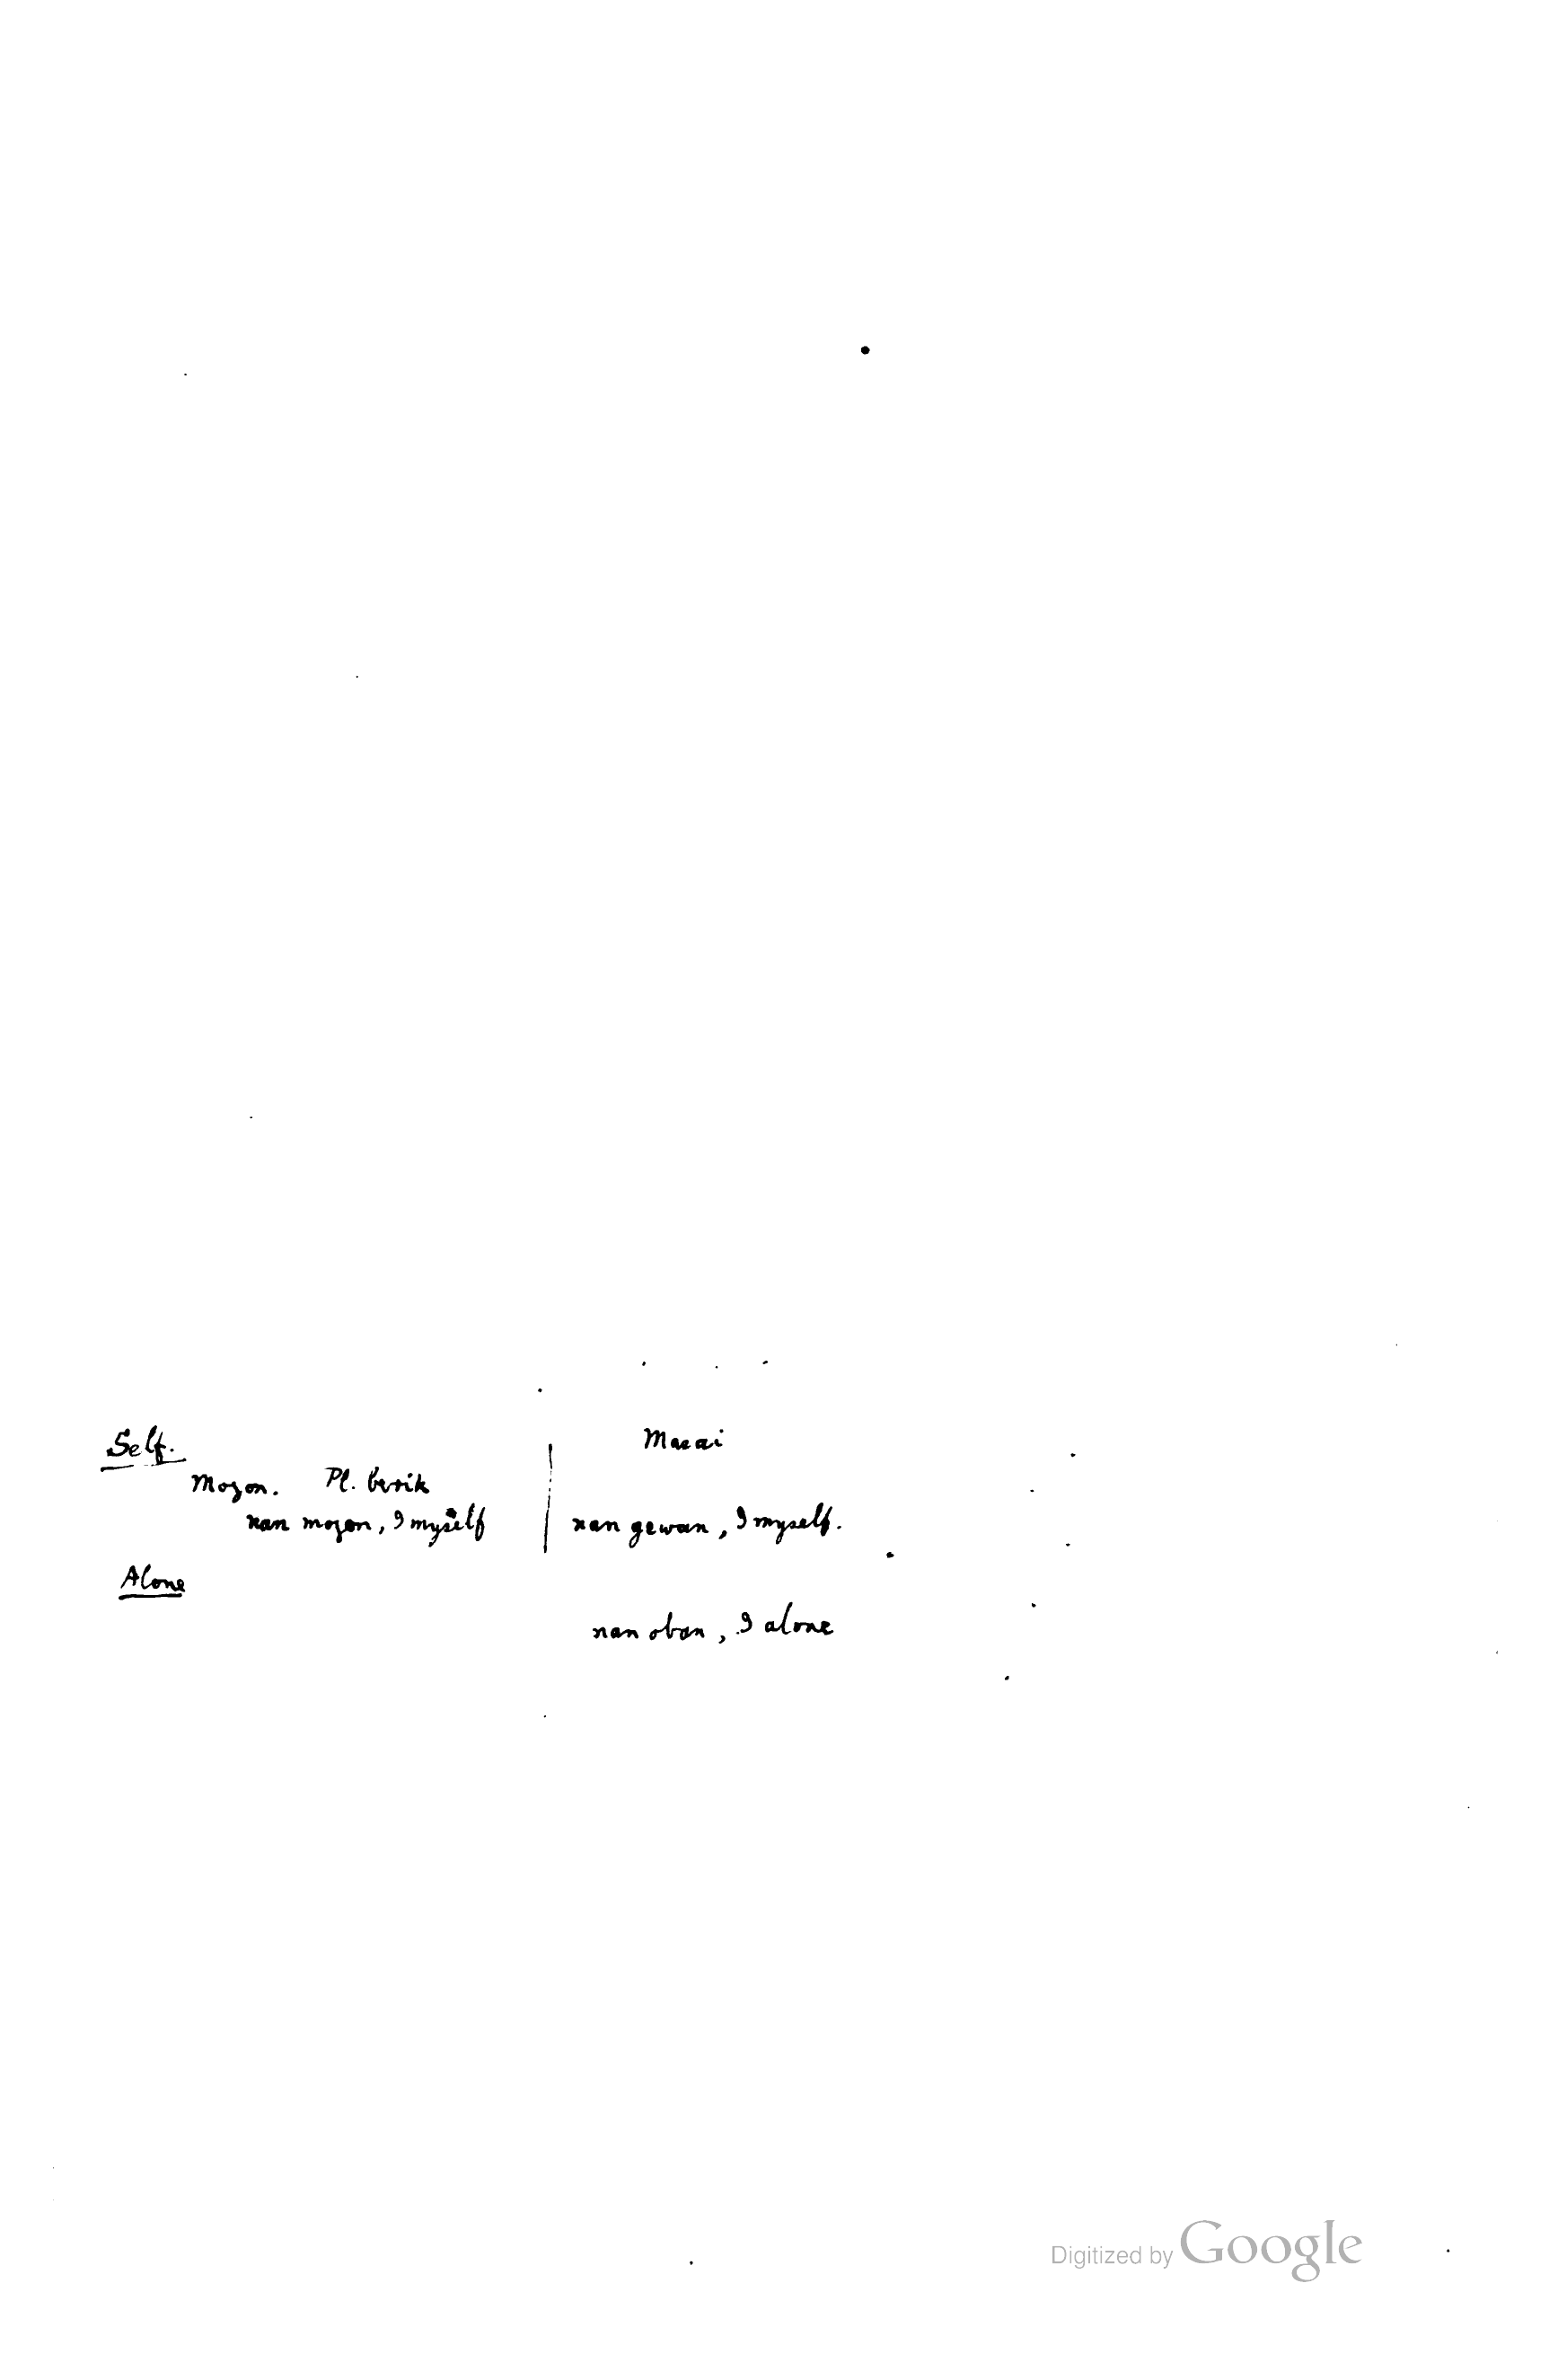 Self.
Masai
Mozon. Pl. berik
nan mozon, I myself | nan gewan, I myself.
Alone
nan oban, I alone
Digitized by Google